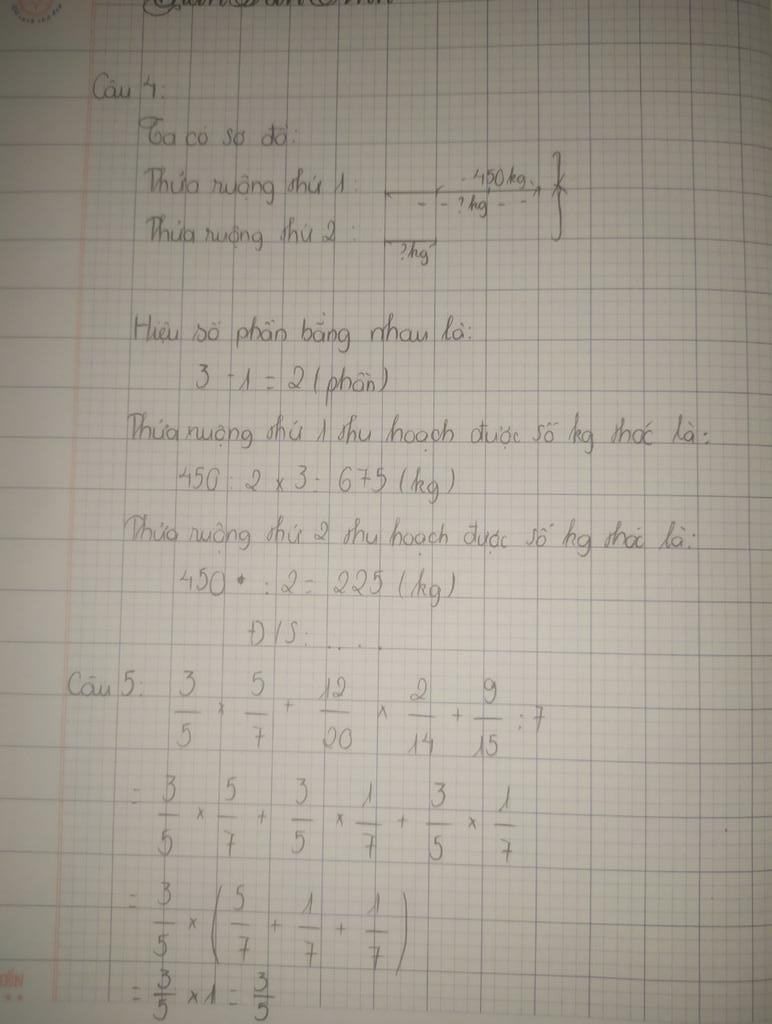 Câu 4:
Ta có sơ đồ:
Thửa ruộng thứ 1: 450kg
? kg
Thửa ruộng thứ 2:
? kg
Hiệu số phần bằng nhau là:
3 - 1 = 2 (phần)
Thửa ruộng thứ 1 thu hoạch được số kg thóc là:
450 : 2 x 3 = 675 (kg)
Thửa ruộng thứ 2 thu hoạch được số kg thóc là:
450 : 2 = 225 (kg)
Đ/S: . . . .
Câu 5: 3/5 x 5/7 + 12/20 x 2/14 + 9/15 : 7
= 3/5 x 5/7 + 3/5 x 1/7 + 3/5 x 1/7
= 3/5 x (5/7 + 1/7 + 1/7)
= 3/5 x 1 = 3/5